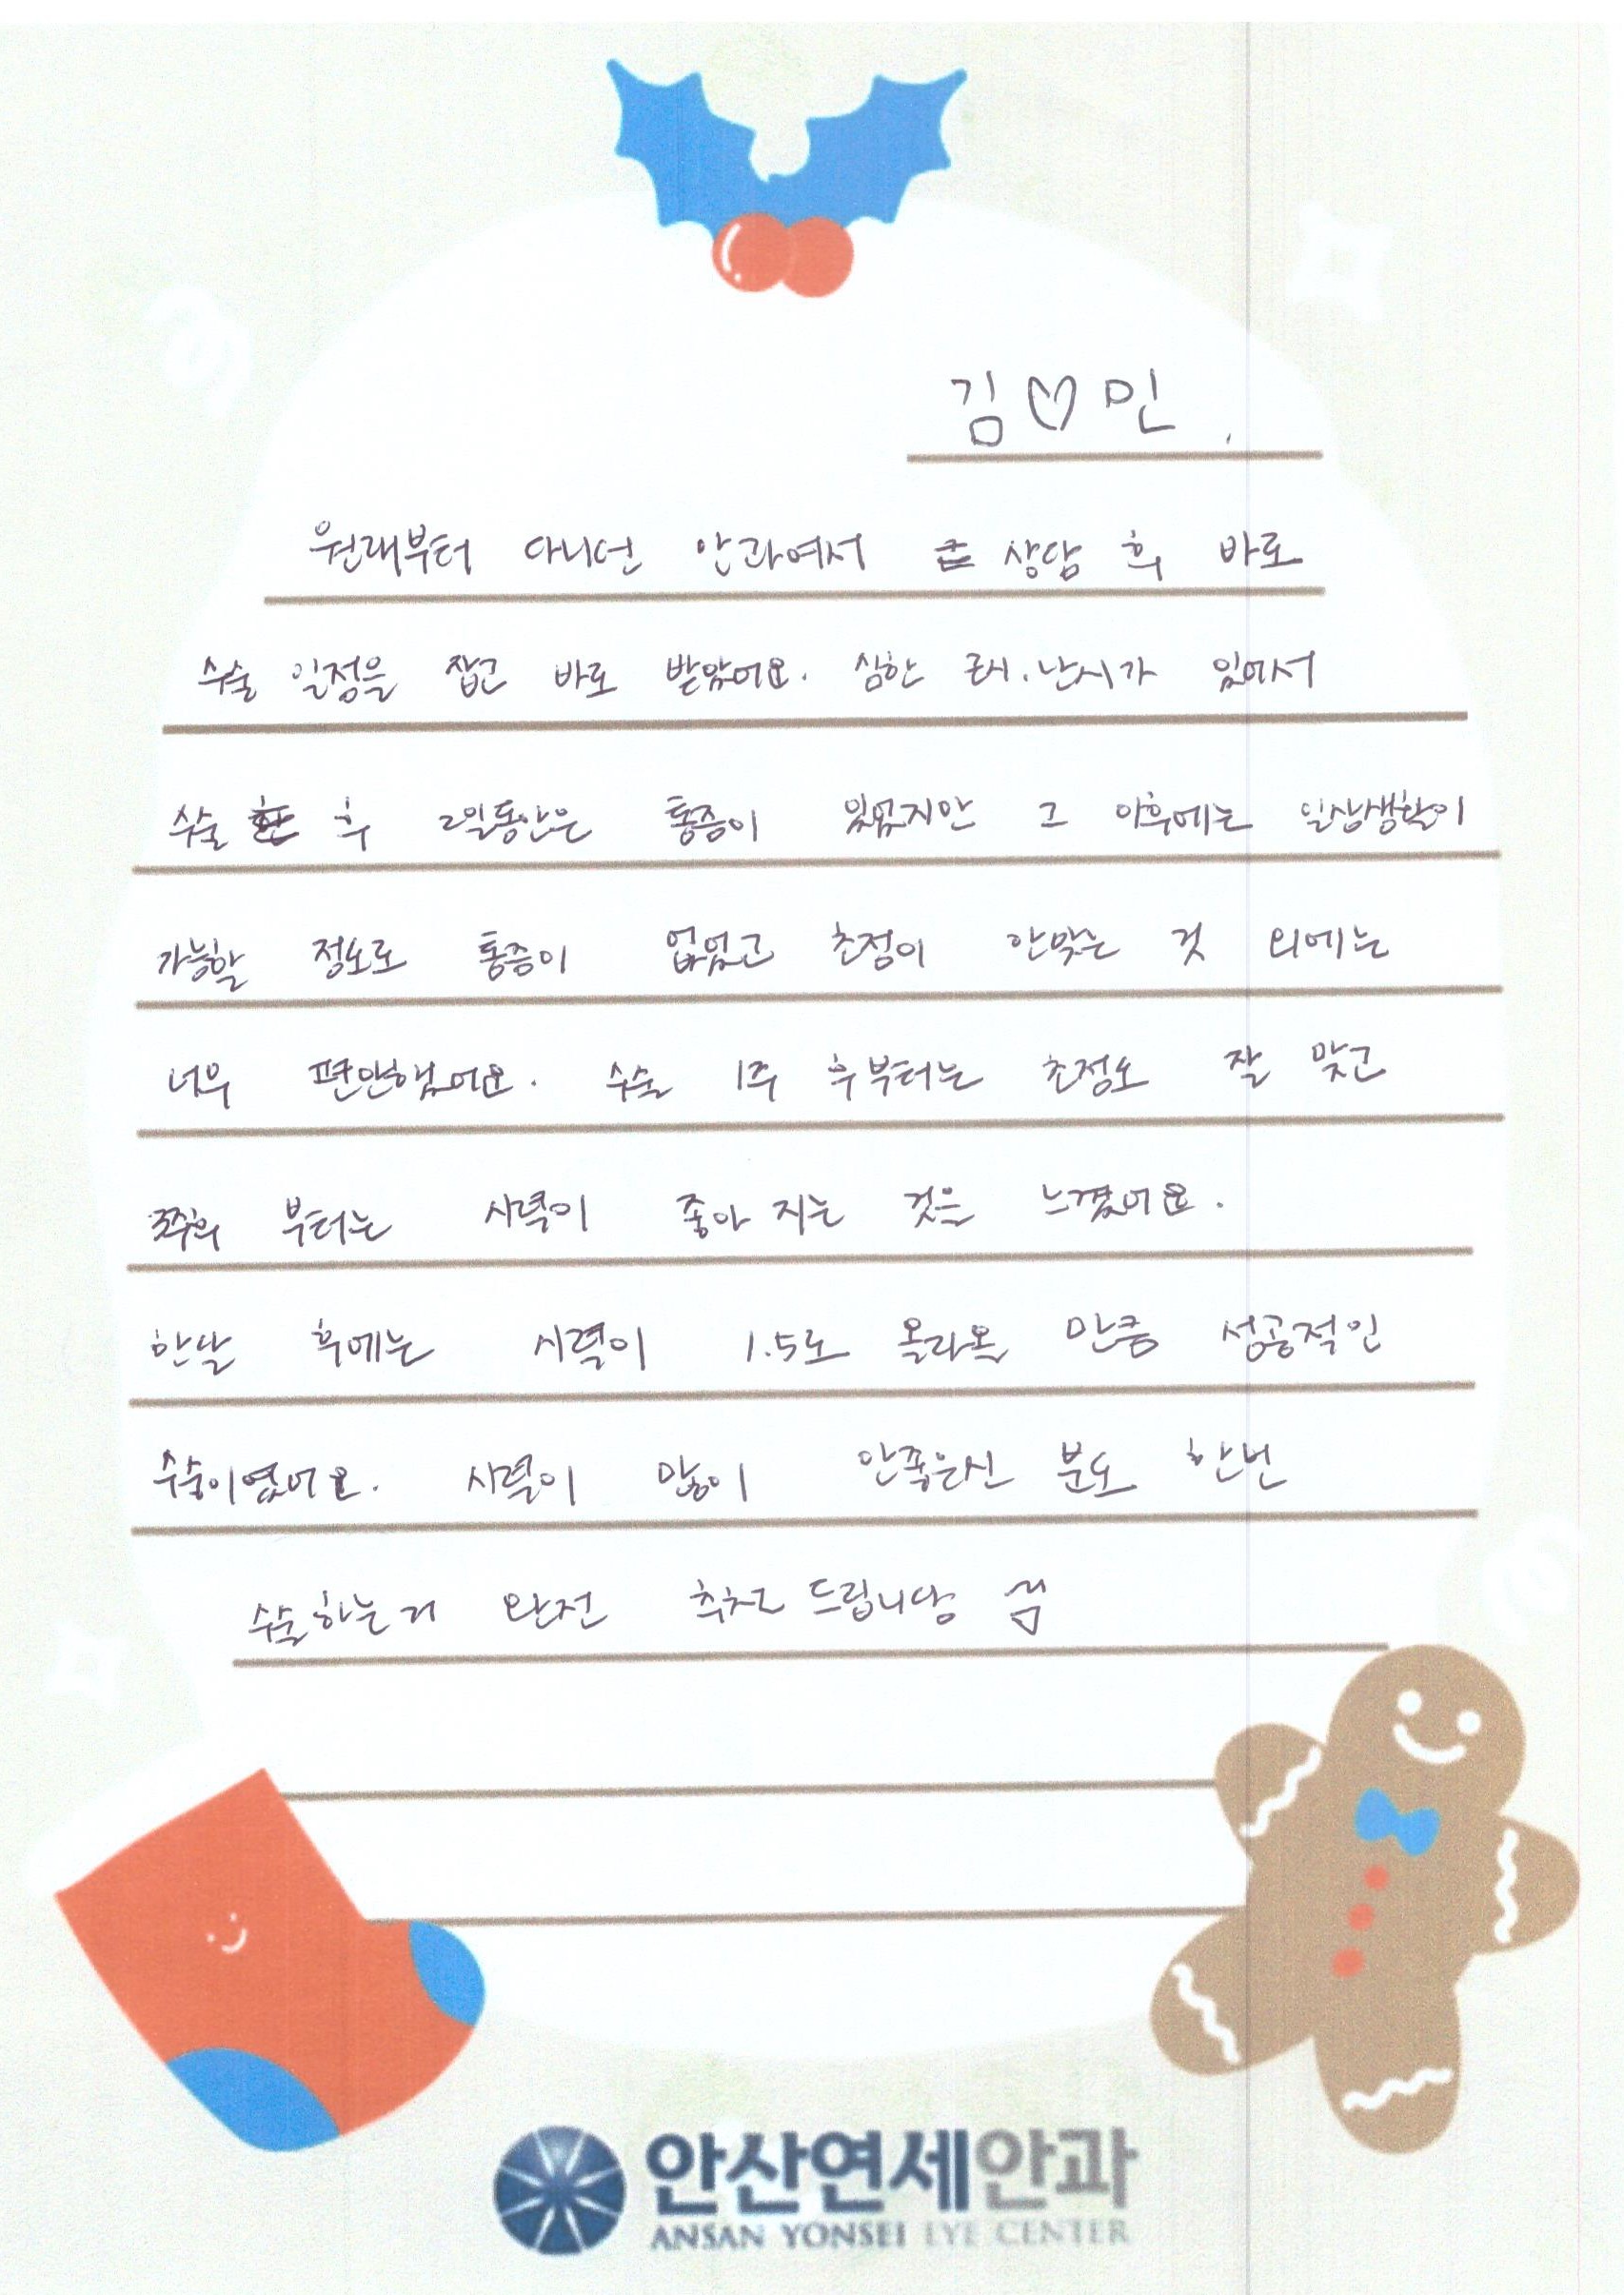 김♡민.
원래부터 다니던 안과여서 상담 후 바로
수술 일정을 잡고 바로 받았어요. 심한 근시.난시가 있어서
수술 후 2일동안은 통증이 있었지만 그 이후에는 일상생활이
가능할 정도로 통증이 없었고 초점이 안맞는 것 외에는
너무 편안했어요. 수술 1주 후부터는 초점도 잘 맞고
부터는 시력이 좋아 지는 것을 느꼈어요.
한달 후에는 시력이 1.5로 올라올 만큼 성공적인
수술이였어요. 시력이 많이 안좋은신 분도 한번
수술하는거 완전 추천 드립니당
안산연세안과
ANSAN YONSEI EYE CENTER